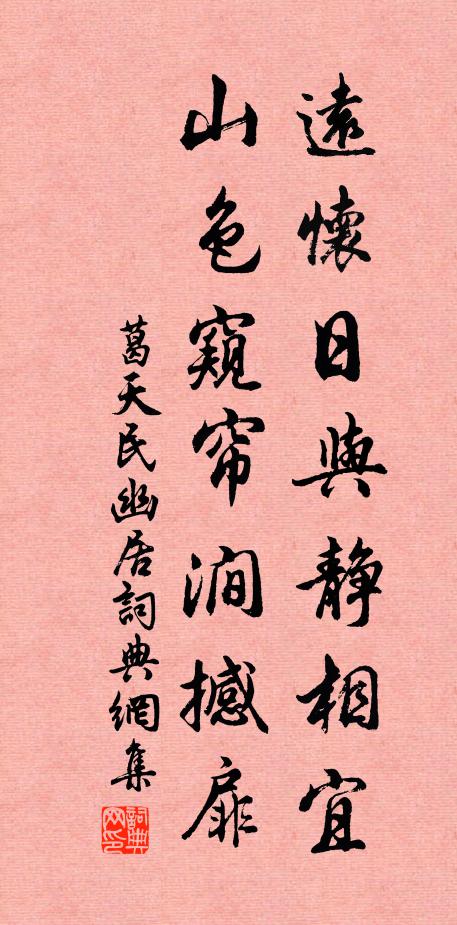 遠懷日與静相宜
山色窺帘澗撼扉
葛天民幽居詞典網集
詞典网印